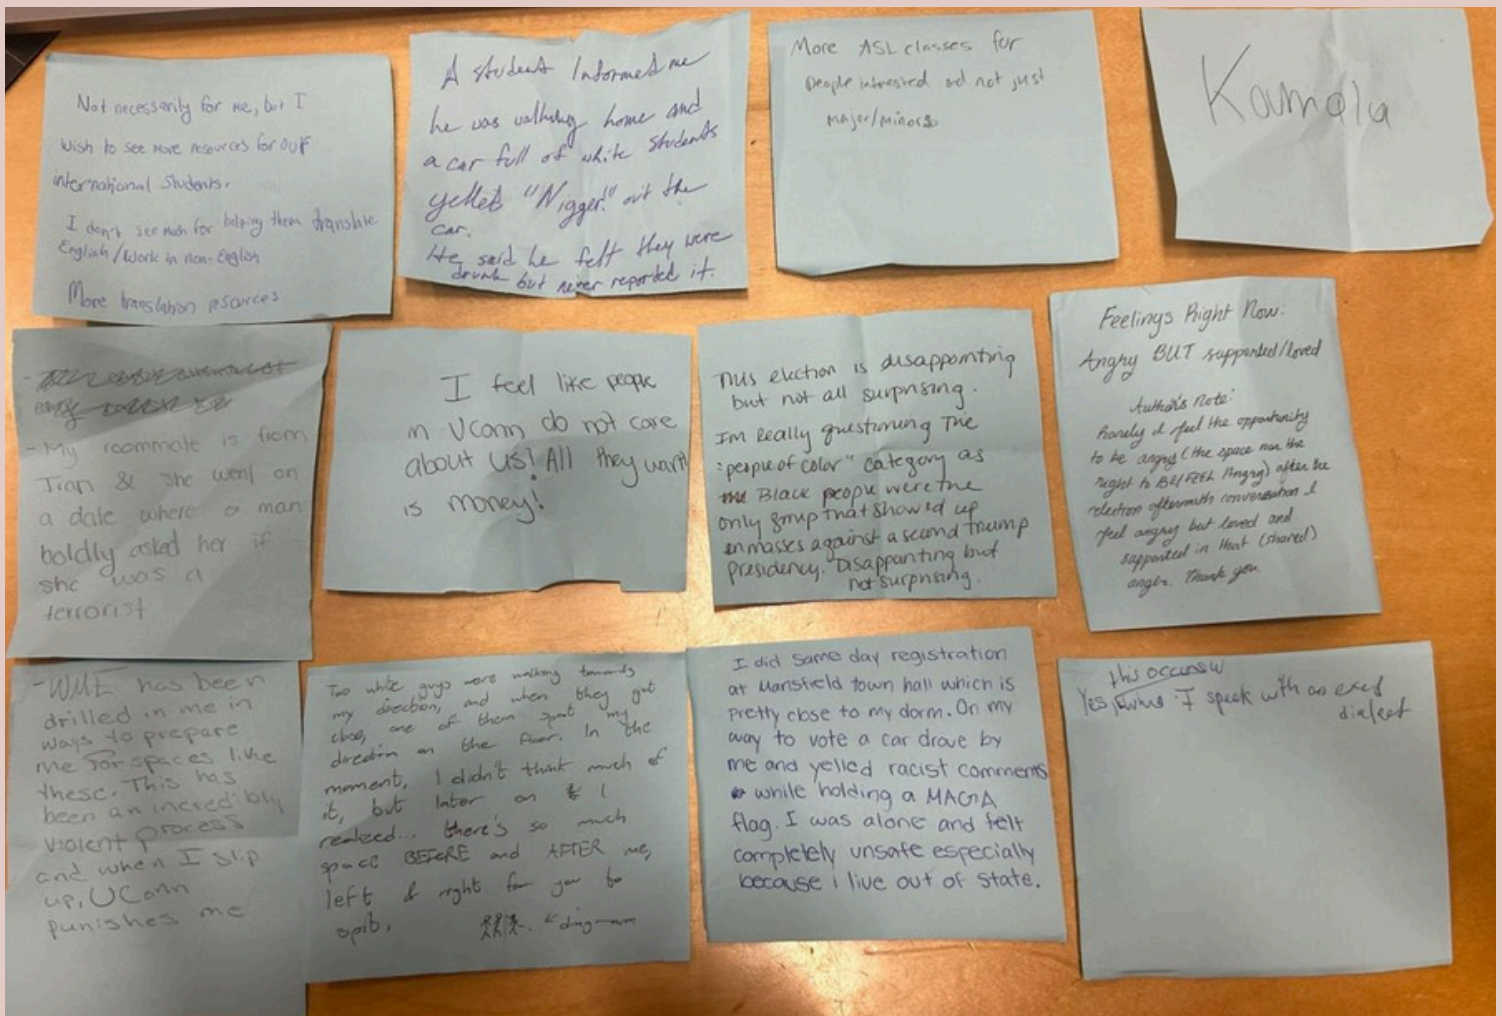 Not necessarily for me, but I
wish to see more resources for our
international students.
I don't see much for helping them translate
English/Work in non-English
More translation resources
A student Informed me
he was walking home and
a car full of white students
yelled "Nigger!" out the
car.
He said he felt they were
drunk but never reported it.
More ASL classes for
People interested and not just
major/minors
Kamala
- My roommate is from
Iran & she went on
a date where a man
boldly asked her if
she was a
terrorist
I feel like people
in UConn do not care
about us! All they want
is money!
This election is disappointing
but not all surprising.
Im really questioning the
"people of color" category as
Black people were the
only group that showed up
enmasses against a second trump
presidency. Disappointing but
not surprising.
Feelings Right Now:
Angry BUT supported/loved
Author's Note:
Rarely do I feel the opportunity
to be angry (the space nor the
right to BE/FEEL Angry) after the
election aftermath conversation I
feel angry but loved and
supported in that (shared)
anger. Thank you.
- WME has been
drilled in me in
ways to prepare
me for spaces like
these. This has
been an incredibly
violent process
and when I slip
up, UConn
punishes me
Two white guys were walking towards
my direction, and when they got
close, one of them spat my
direction on the floor. In the
moment, I didn't think much of
it, but later on I
realized... there's so much
space BEFORE and AFTER me,
left & right for you to
spit. ← diagram
I did same day registration
at Mansfield town hall which is
pretty close to my dorm. On my
way to vote a car drove by
me and yelled racist comments
while holding a MAGA
flag. I was alone and felt
completely unsafe especially
because i live out of state.
this occurs w
Yes, I speak with an
dialect